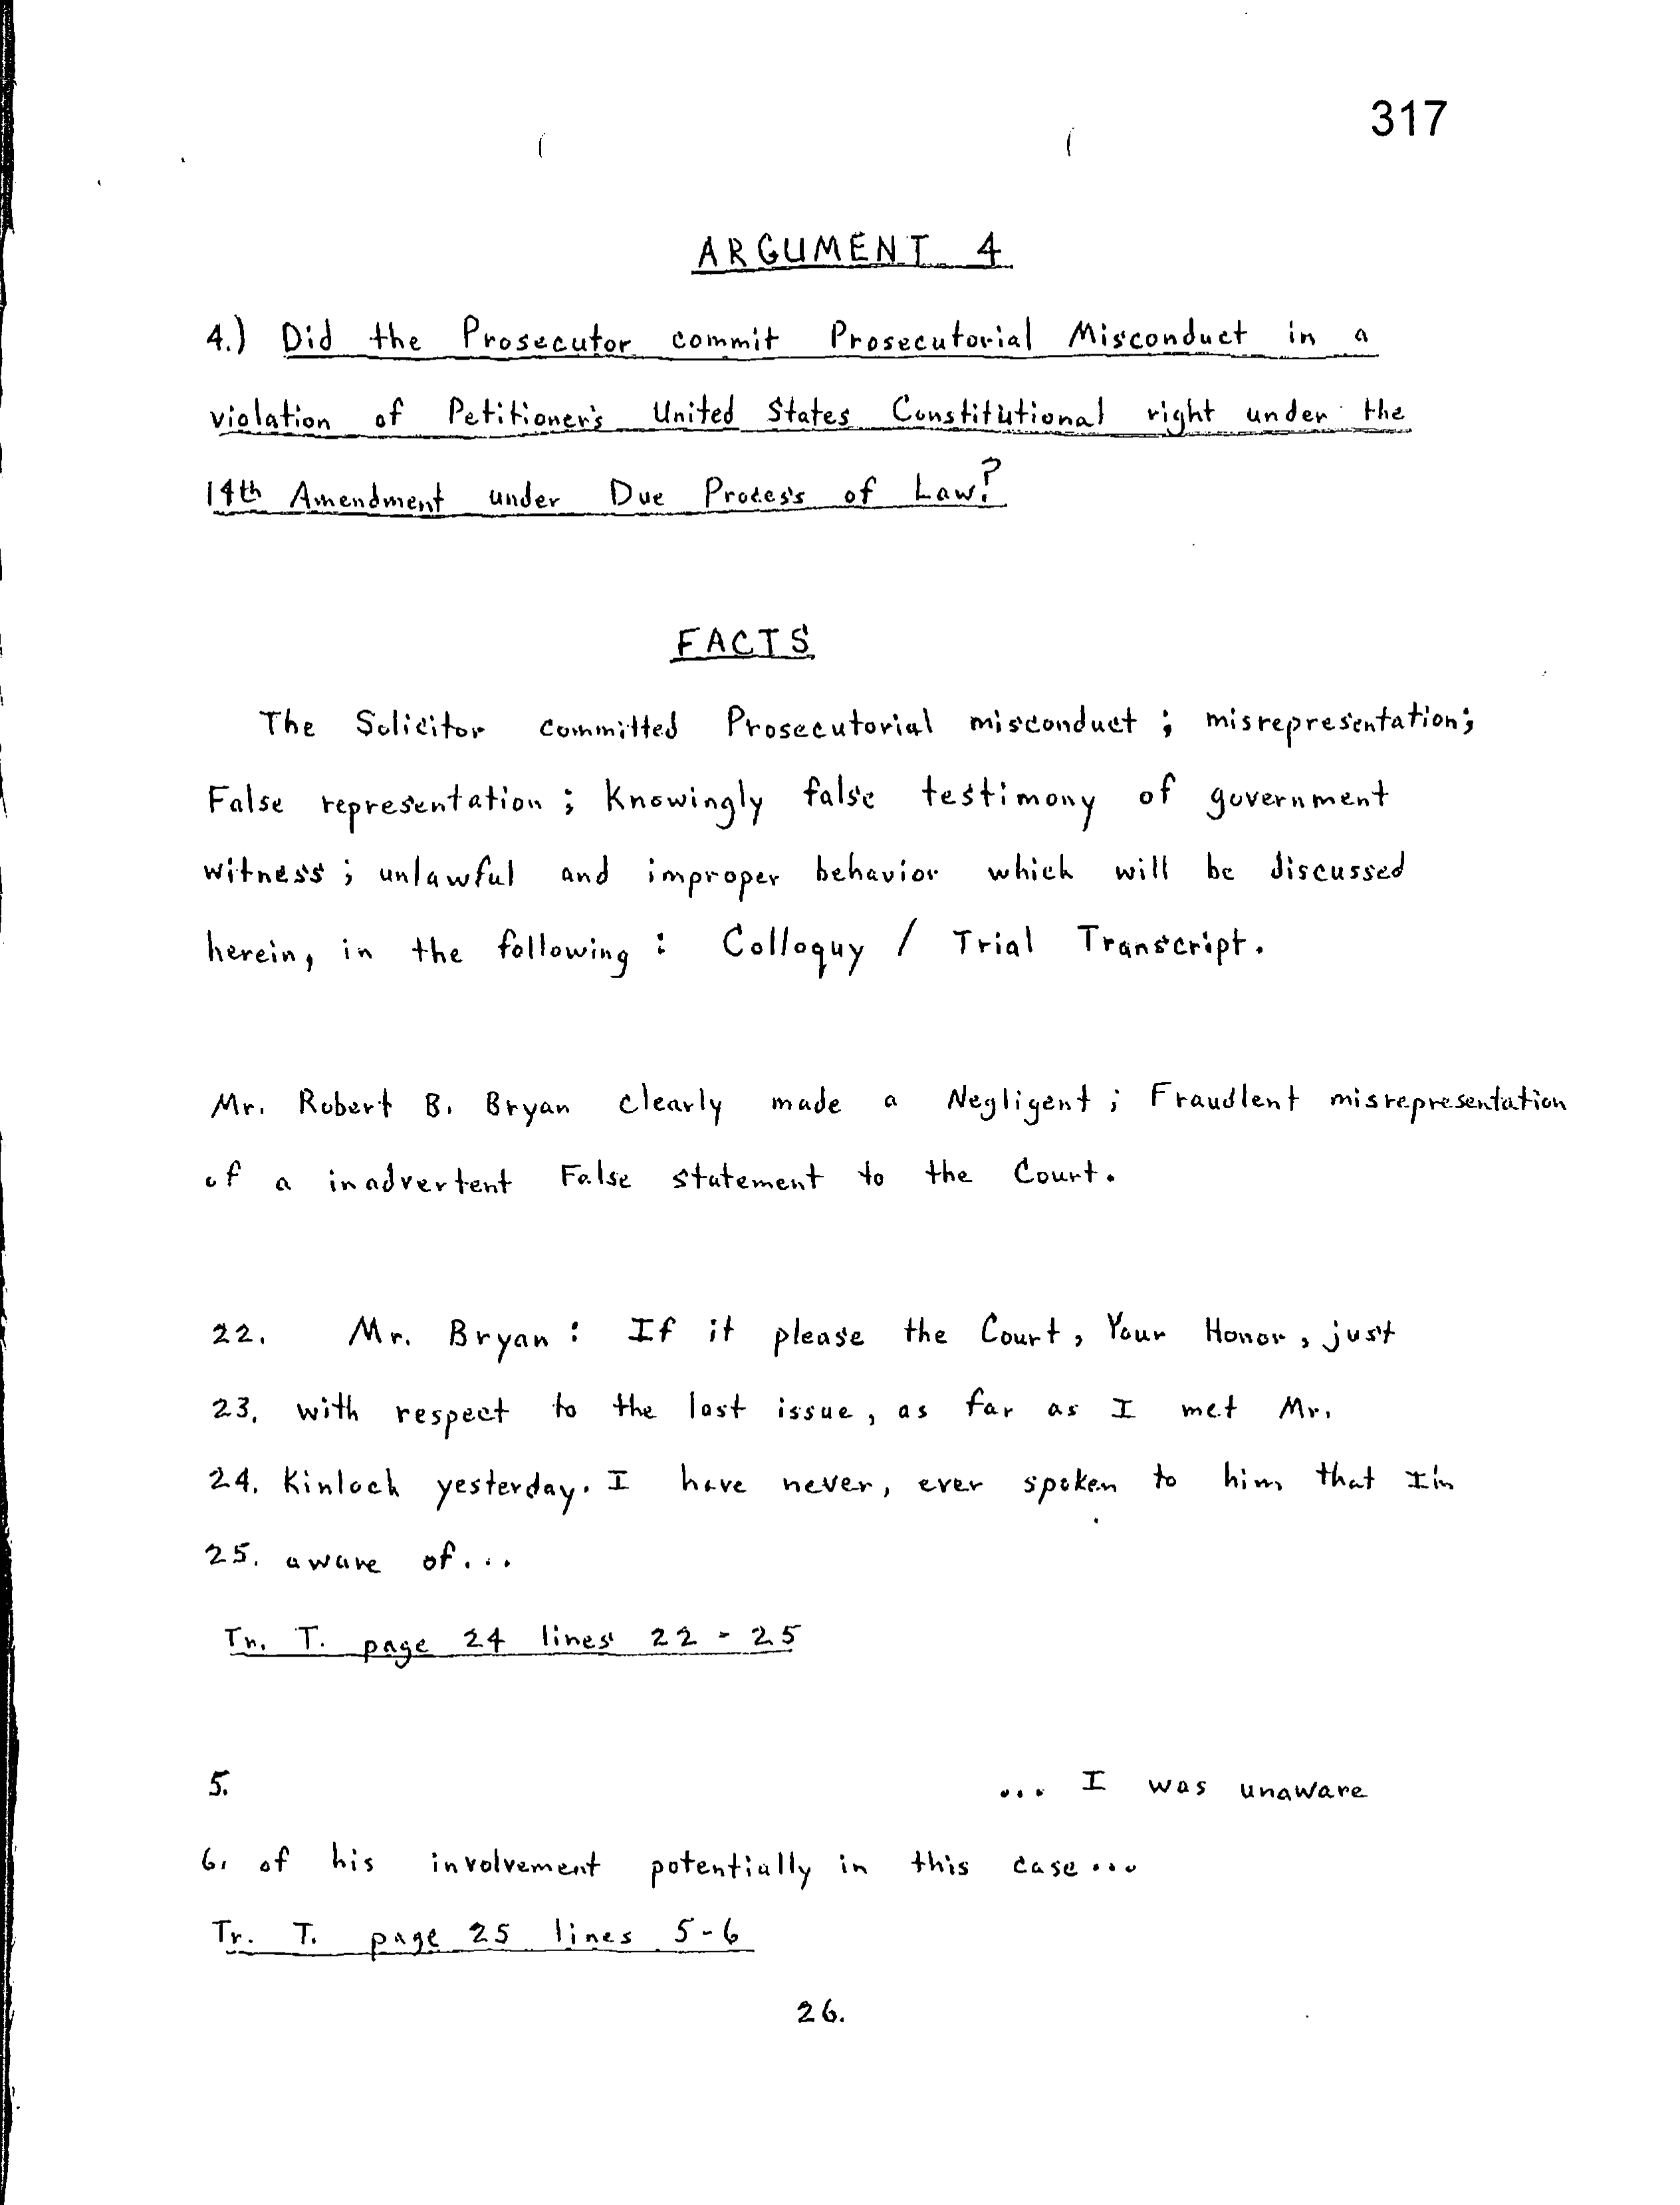 317
ARGUMENT 4
4.) Did the Prosecutor commit Prosecutorial Misconduct in a
violation of Petitioner's United States Constitutional right under the
14th Amendment under Due Process of Law?
FACTS
The Solicitor committed Prosecutorial misconduct ; misrepresentation;
False representation ; Knowingly false testimony of government
witness ; unlawful and improper behavior which will be discussed
herein, in the following : Colloquy / Trial Transcript.
Mr. Robert B. Bryan clearly made a Negligent ; Fraudlent misrepresentation
of a inadvertent False statement to the Court.
22. Mr. Bryan : If it please the Court, Your Honor, just
23. with respect to the last issue, as far as I met Mr.
24. Kinloch yesterday. I have never, ever spoken to him that I'm
25. aware of...
Tr. T. page 24 lines 22 - 25
5. ... I was unaware
6. of his involvement potentially in this case...
Tr. T. page 25 lines 5-6
26.